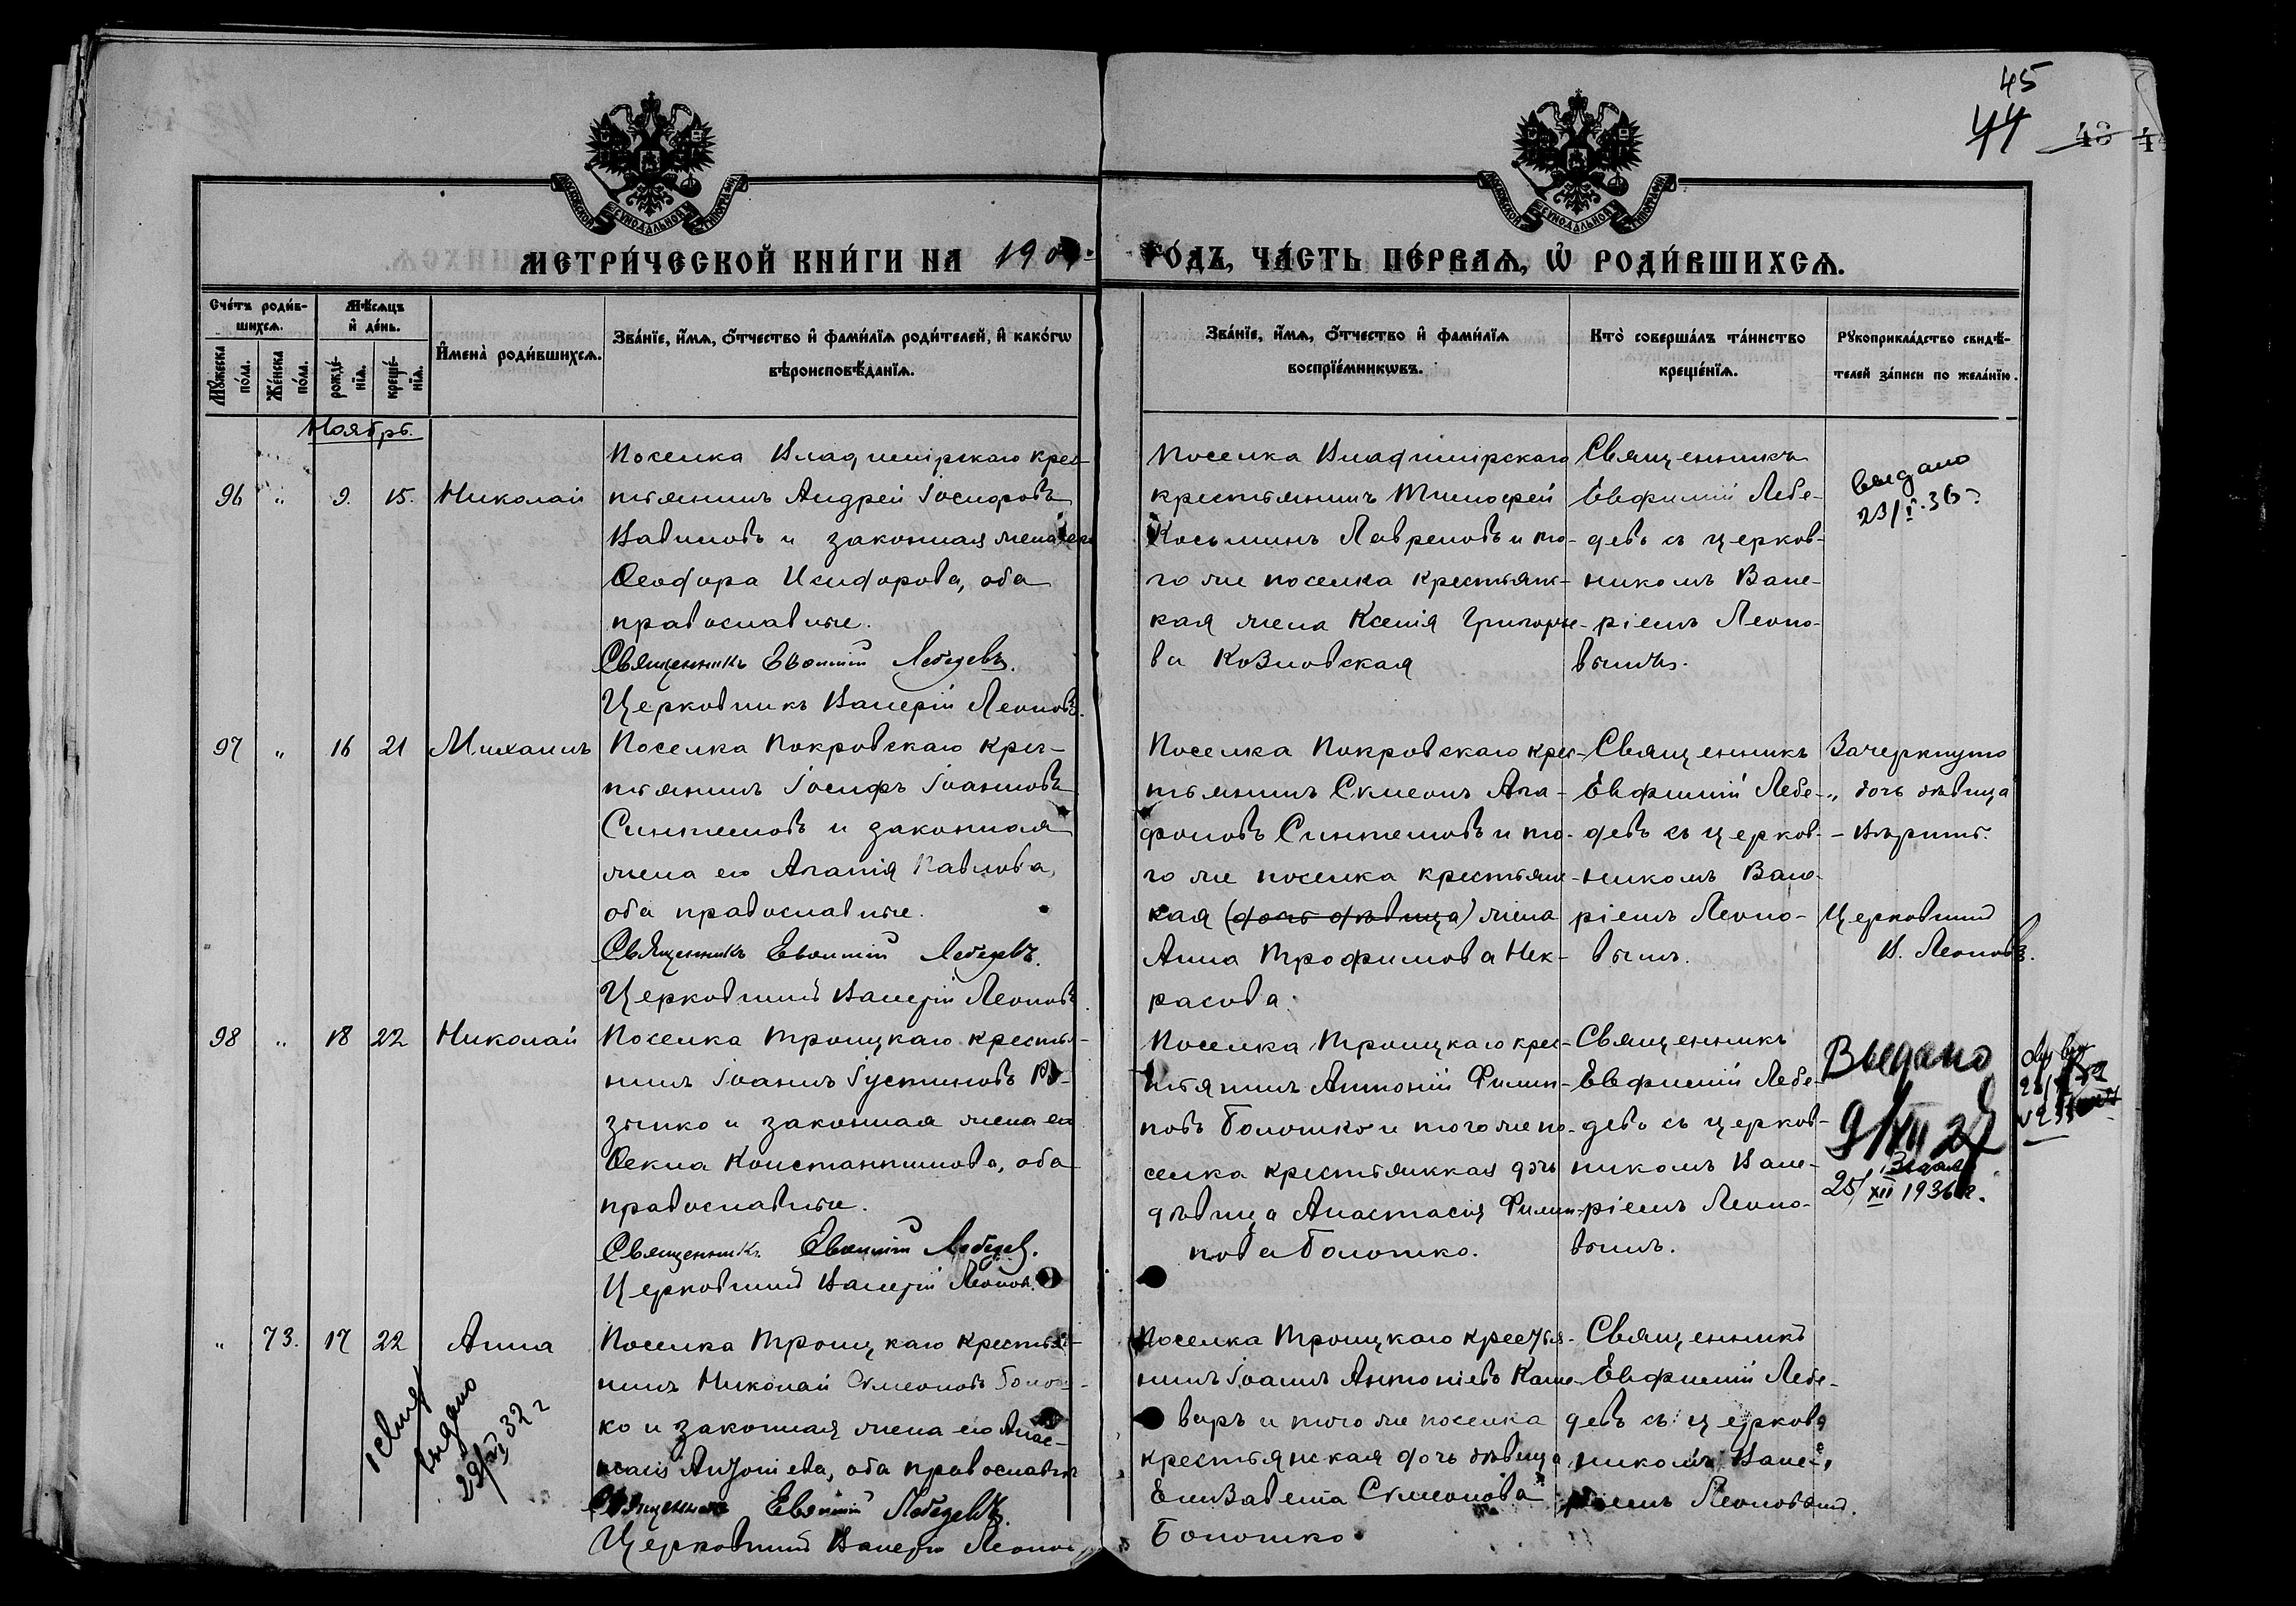 45
44
43
МОСКОВСКОЙ СѴНОДАЛЬНОЙ ТИПОГРАФІИ
МОСКОВСКОЙ СѴНОДАЛЬНОЙ ТИПОГРАФІИ
МЕТРИ́ЧЕСКОЙ КНИ́ГИ НА 190 ГО́ДЪ, ЧА́СТЬ ПЕ́РВАѦ, Ѡ РОДИ́ВШИХСѦ.
Сче́тъ роди́в-
шихсѧ.
Мꙋ́жеска по́ла.
Же́нска по́ла.
Мѣ́сѧцъ
и҆ де́нь.
рожде́-
нїѧ.
креще́-
нїѧ.
И҆мена̀ роди́вшихсѧ.
Зва́нїе, и҆́мѧ, ѻ҆́тчество и҆ фами́лїѧ роди́телей, и҆ како́гѡ
вѣроисповѣ́данїѧ.
Зва́нїе, и҆́мѧ, ѻ҆́тчество и҆ фами́лїѧ
воспрїе́мникѡвъ.
Кто̀ соверша́лъ та́инство
креще́нїѧ.
Рꙋкоприкла́дство свидѣ́-
телей за́писи по жела́нїю.
Ноябрь.
96 " 9. 15. Николай
Поселка Владимірскаго крес-
тьянинъ Андрей Іосифовъ
Вавиловъ и законная жена его
Ѳеодора Исидорова, оба
православные.
Священникъ Евѳимій Лебедевъ.
Церковникъ Валерій Леоновъ.
Поселка Владимірскаго
крестьянинъ Тимофей
Косьминъ Лавреновъ и то-
го же поселка крестьянс-
кая жена Ксенія Григорье-
ва Козловская
Священникъ
Евфимій Лебе-
девъ съ церков-
никомъ Вале-
ріемъ Леоно-
вымъ.
выдано
23/I.36г.
97 " 16 21 Михаилъ
Поселка Покровскаго крес-
тьянинъ Іосифъ Іоанновъ
Синтеновъ и законная
жена его Агапія Павлова,
оба православные.
Священникъ Евѳимій Лебедевъ.
Церковникъ Валерій Леоновъ
Поселка Покровскаго крес-
тьянинъ Симеонъ Ага-
фоновъ Синтеновъ и то-
го же поселка крестьянс-
кая (дочь дѣвица) жена
Анна Трофимова Нек-
расова.
Священникъ
Евфимій Лебе-
девъ съ церков-
никомъ Вале-
ріемъ Леоно-
вымъ.
Зачеркнуто
„ дочь дѣвица
- вѣрить.
Церковникъ
В. Леоновъ.
98 " 18 22 Николай
Поселка Троицкаго крестья-
нинъ Іоаннъ Іустиновъ
зыкко и законная жена его
Ѳекла Константинова, оба
православные.
Священникъ Евѳимій Лебедев.
Церковникъ Валерій Леонов.
Поселка Троицкаго крес-
тьянинъ Антоній Филип-
повъ Болошко и того же по-
селка крестьянская дочь
дѣвица Анастасія Филип-
пова Болошко.
Священникъ
Евфимій Лебе-
девъ съ церков-
никомъ Вале-
ріемъ Леоно-
вымъ.
Выдано
9/XII 27
Выдан
25/XII 1936 г.
" 73. 17 22 Анна
Поселка Троицкаго крестья-
нинъ Николай Симеоновъ Болош-
ко и законная жена его Анас-
тасія Антоніева, оба православные
Священникъ Евѳимій Лебедевъ.
Церковникъ Валерій Леонов
Поселка Троицкаго крестья-
нинъ Іоаннъ Антоніевъ Каше-
варъ и того же поселка
крестьянская дочь дѣвица
Елизавета Симеонова
Болошко
Священникъ
Евфимій Лебе-
девъ съ церков
никомъ Вале-
ріемъ Леоновымъ.
выдано
32 г